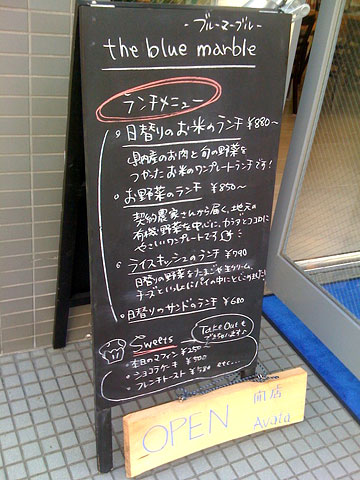 -ブルーマーブル-
the blue marble
ランチメニュー
日替りのお米のランチ ¥880〜
県内産のお肉と旬の野菜を
つかったお米のワンプレートランチです!
お野菜のランチ ¥850〜
契約農家さんから届く、地元の
有機野菜を中心に、カラダとココロに
やさしいワンプレートです
ライスキッシュのランチ ¥790
日替りの野菜をたまごや生クリーム、
チーズといっしょにパイの中にとじこめました!
日替りのサンドのランチ ¥680
Sweets
Take Outも
できちゃいます♪
・本日のマフィン ¥250〜
・ショコラケーキ ¥400
・フレンチトースト ¥580 etc...
OPEN
Avata